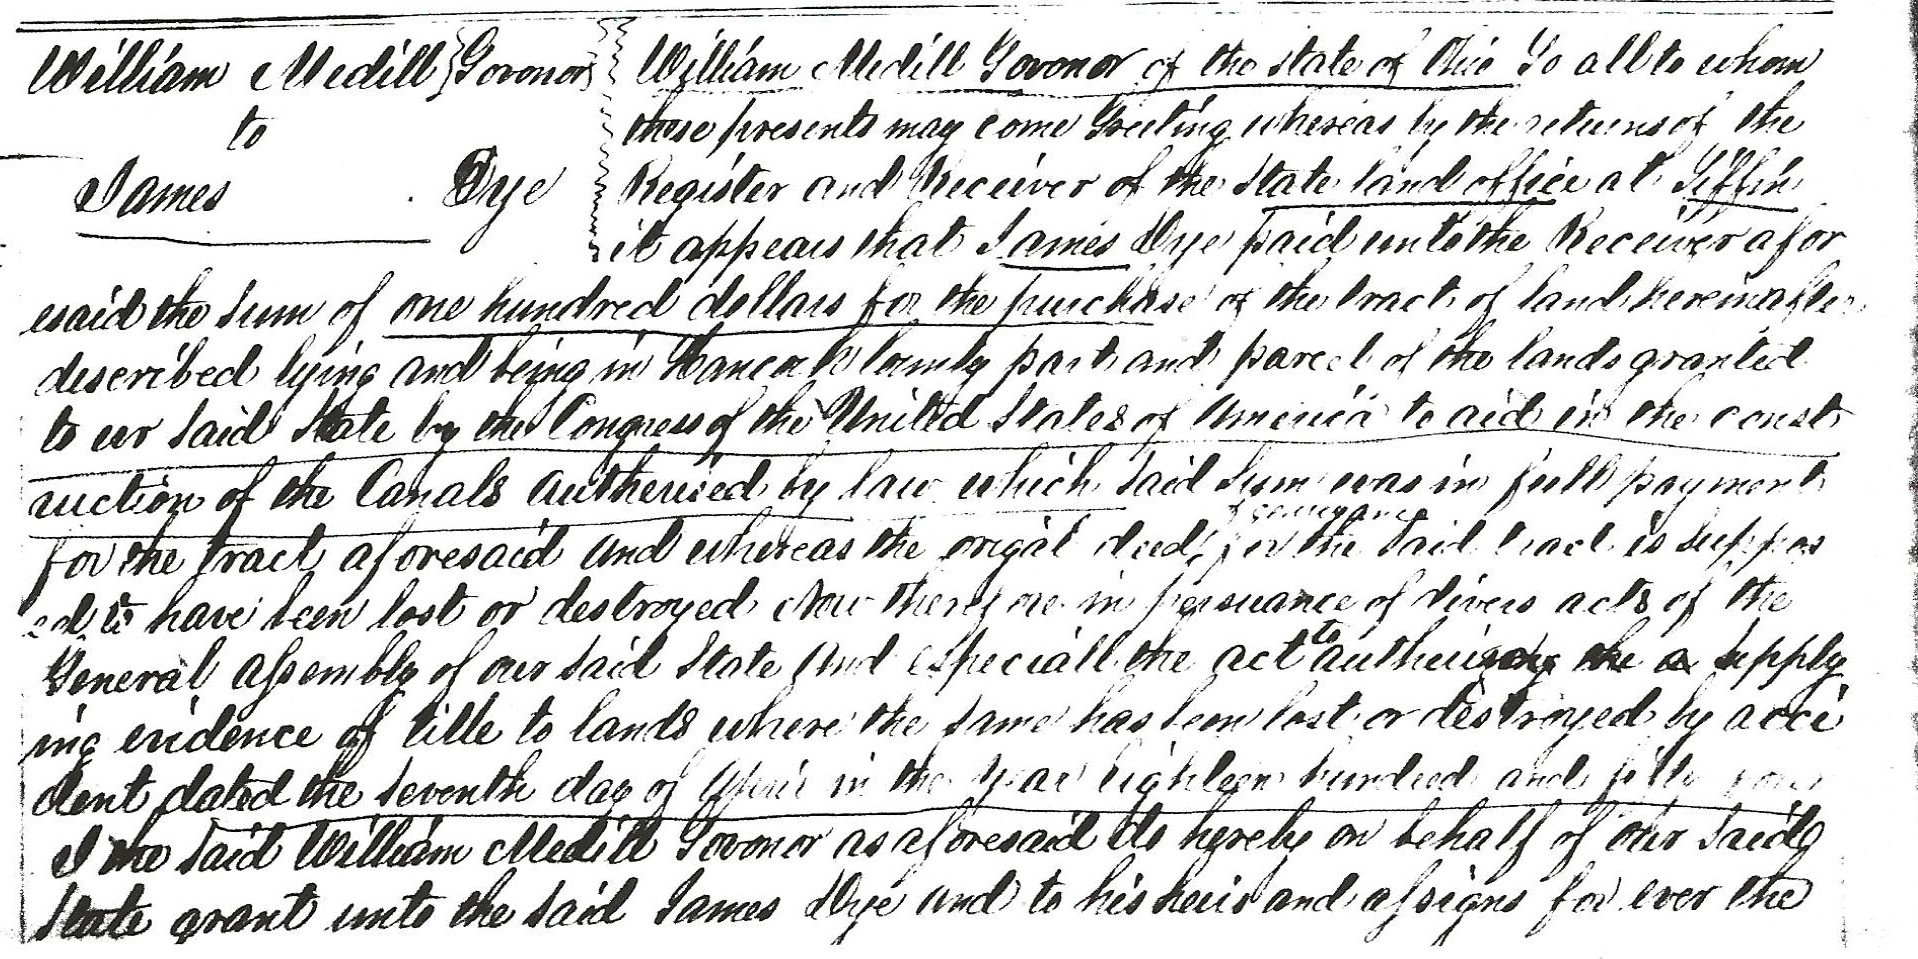 William Medill Govonor
to
James Dye
William Medill Govonor of the state of Ohio To all to whom
these presents may come Greeting whereas by the returns of the
Register and Receiver of the State land office at Tiffin
it appears that James Dye paid unto the Receiver afor
esaid the sum of one hundred dollars for the purchase of the tract of land hereinafter
described lying and being in Hancock County part and parcel of the lands granted
to our said State by the Congress of the United States of America to aid in the const
ruction of the Canals authorised by law which said sum was in full payment
for the tract aforesaid and whereas the origal deed for the said tract is suppos
ed to have been lost or destroyed Now therefore in persuance of divers acts of the
General assembly of our said State and especiall the act to the a supply
ing evidence of title to lands where the same has been lost or destroyed by acci
dent dated the seventh day of April in the year Eighteen hundred and fifty
I the said William Medill Govonor as aforesaid do hereby on behalf of our said
State grant unto the said James Dye and to his heirs and assigns for ever the